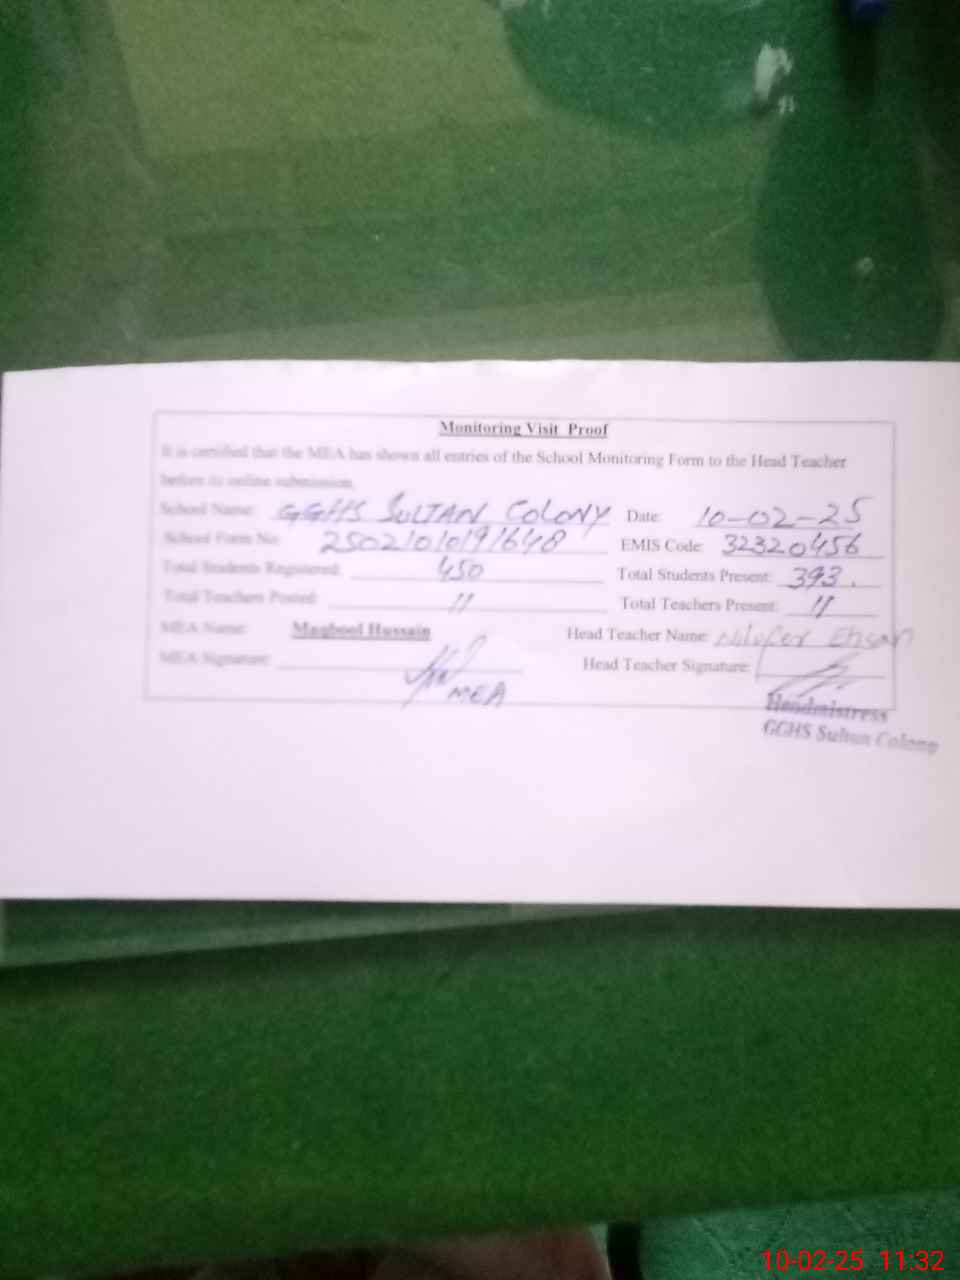 Monitoring Visit Proof
It is certified that the MEA has shown all entries of the School Monitoring Form to the Head Teacher
before its online submission.
School Name: GGHS SULTAN COLONY Date: 10-02-25
School Form No: 25021010191648 EMIS Code: 32320456
Total Students Registered: 450 Total Students Present: 393.
Total Teachers Posted: 11 Total Teachers Present: 11
MEA Name: Maqbool Hussain Head Teacher Name: Nilofer Ehsan
MEA Signature: Head Teacher Signature:
MEA
Headmistress
GGHS Sultan Colony
10-02-25 11:32